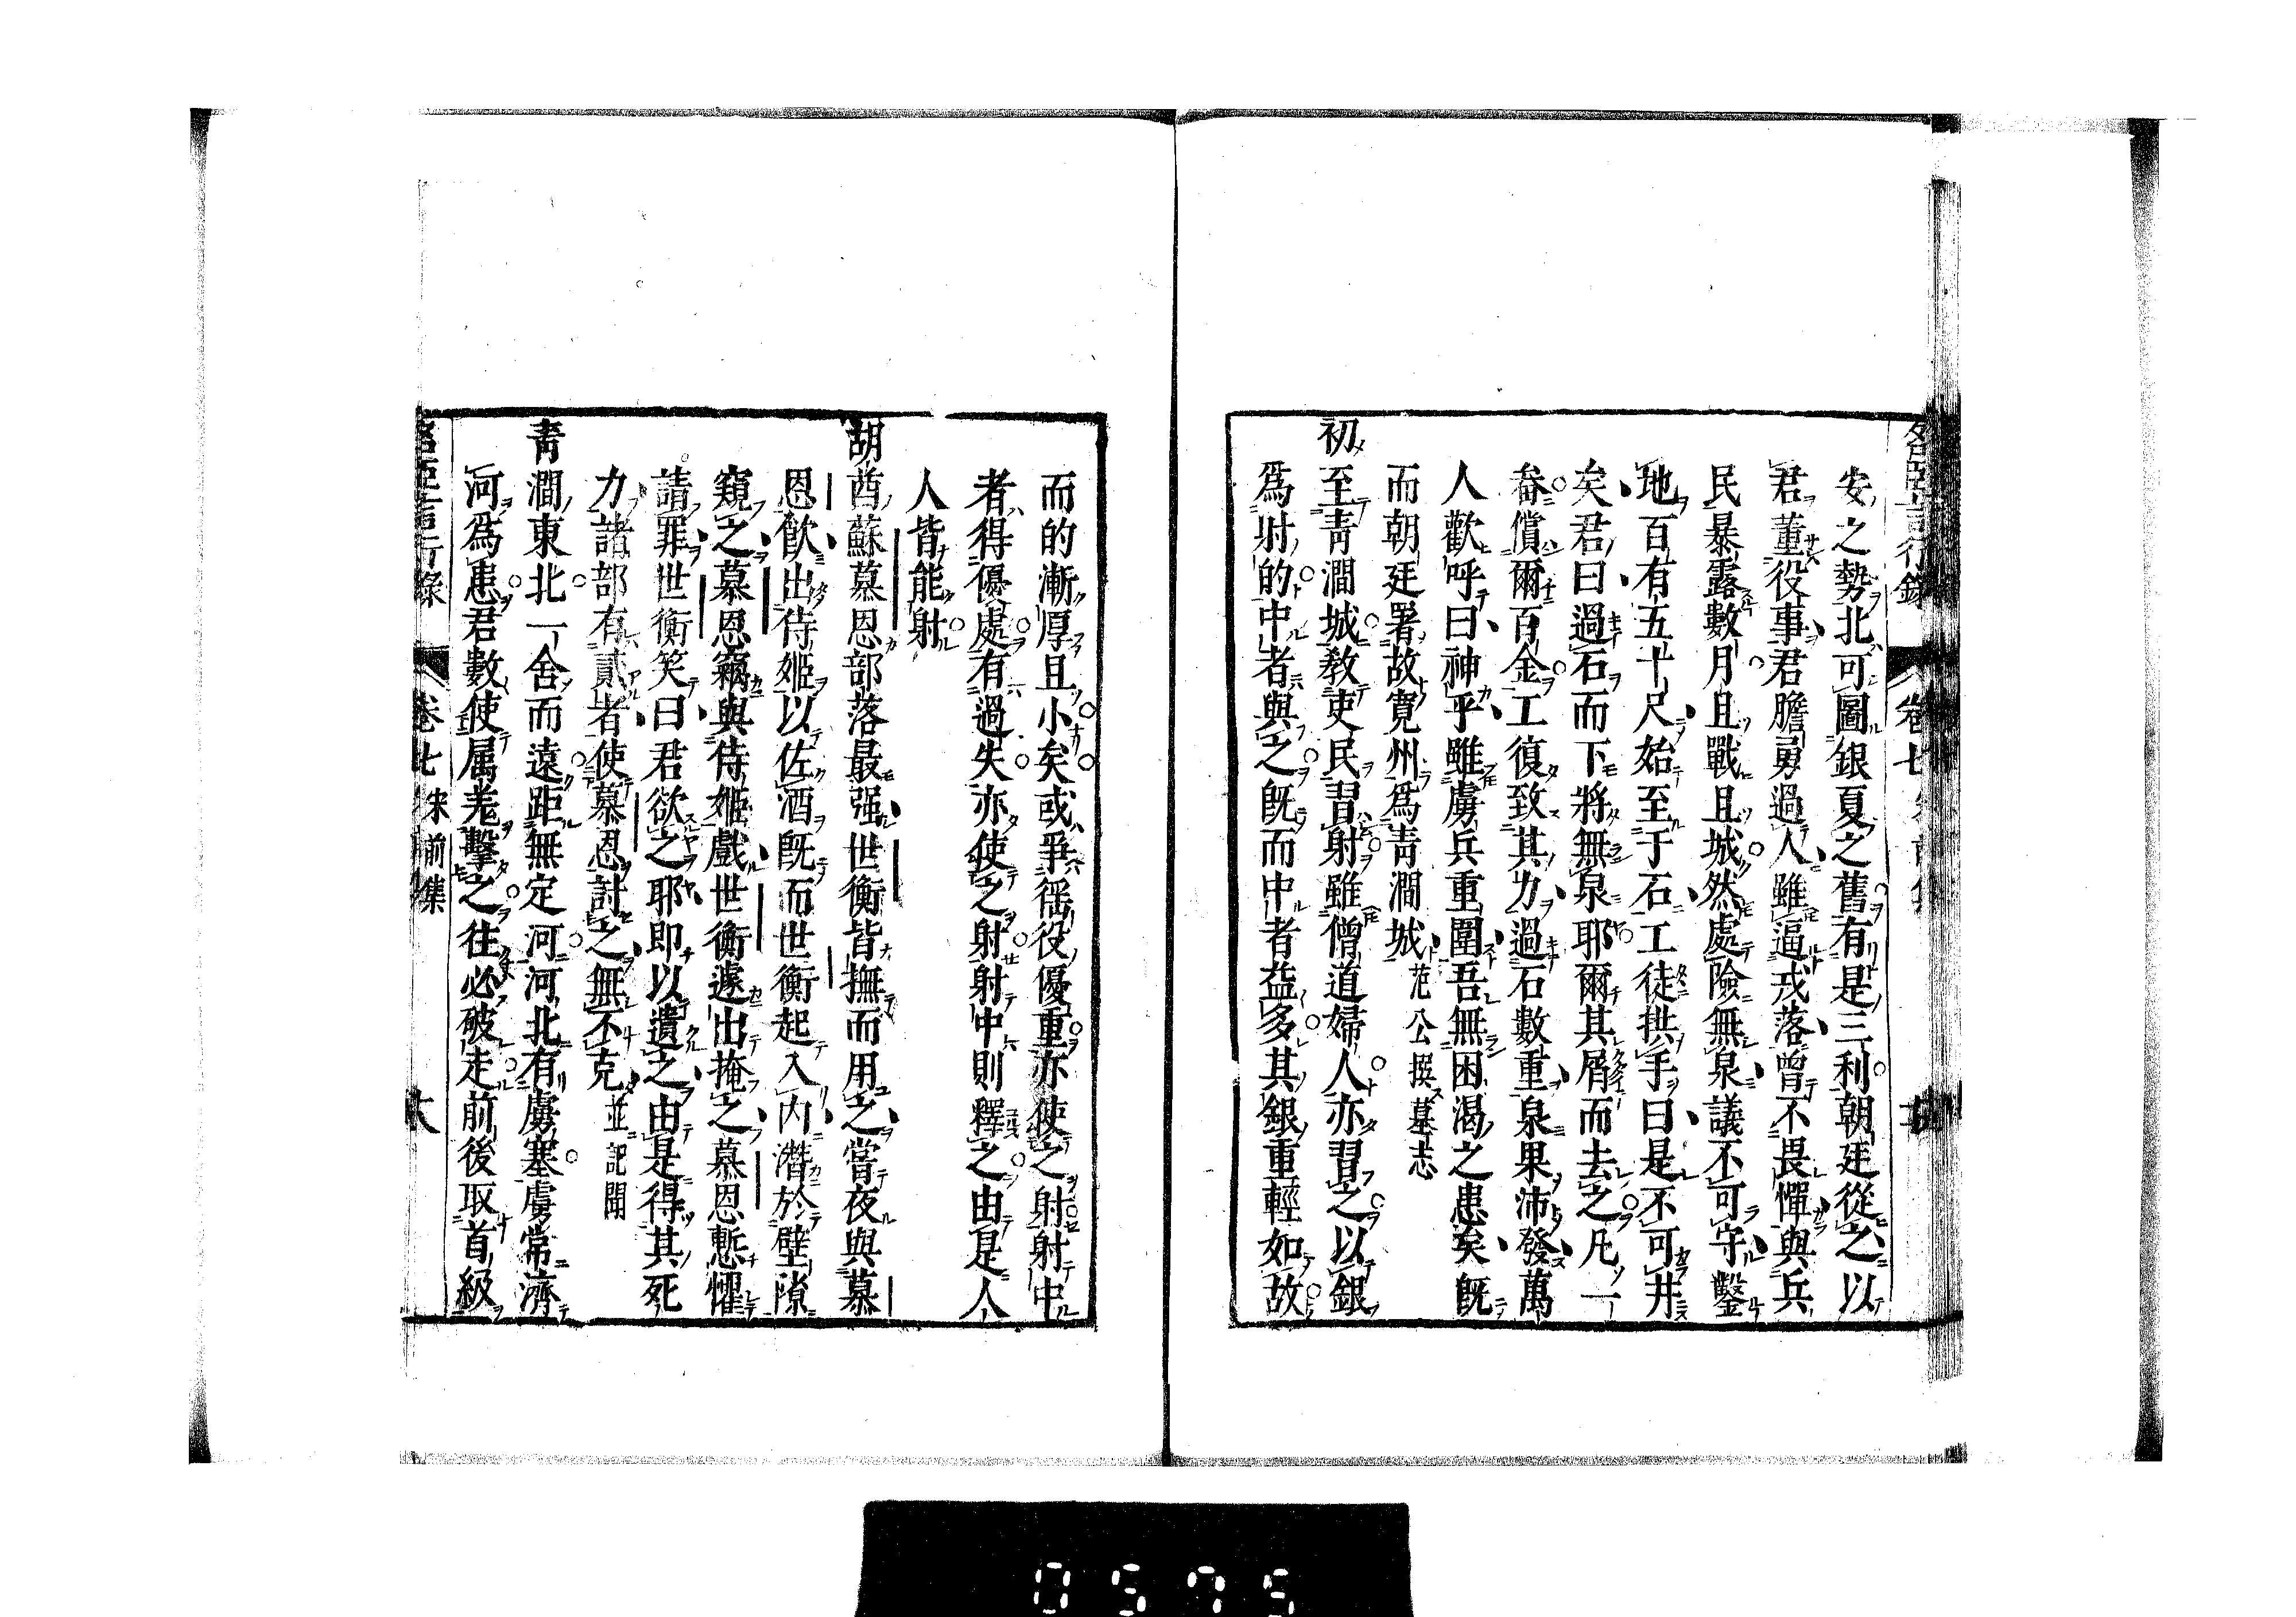 安之勢北可圖銀夏之舊有是三利朝廷從之以
君董役事君膽勇過人雖逼戎落曾不畏憚與兵
民暴露數月且戰且城然處險無泉議不可守鑿
地百有五十尺始至于石工徒拱手曰是不可井
矣君曰過石而下將無泉耶爾其屑而去之凡一
畚償爾百金工復致其力過石數重泉果沛發萬
人歡呼曰神乎雖虜兵重圍吾無困渴之患矣既
而朝廷署故寬州爲青澗城范公撰墓志
初至青澗城教吏民習射雖僧道婦人亦習之以銀
爲射的中者與之既而中者益多其銀重輕如故
而的漸厚且小矣或爭徭役優重亦使之射射中
者得優處有過失亦使之射射中則釋之由是人
人皆能射
胡酋蘇慕恩部落最强世衡皆撫而用之嘗夜與慕
恩飮出侍姬以佐酒既而世衡起入内潛於壁隙
窺之慕恩竊與侍姬戲世衡遽出掩之慕恩慙懼
請罪世衡笑曰君欲之耶即以遺之由是得其死
力諸部有貳者使慕恩討之無不克並記聞
青澗東北一舍而遠距無定河河北有虜塞虜常濟
河爲患君數使属羌擊之往必破走前後取首級
名臣言行錄 卷七 宋前集